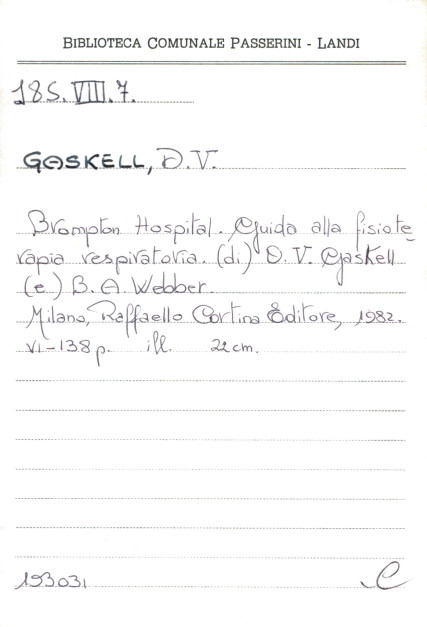 BIBLIOTECA COMUNALE PASSERINI - LANDI
185.VIII.7.
GASKELL, D.V.
Brompton Hospital. Guida alla fisiote-
rapia respiratoria. (di) D. V. Gaskell
(e) B. A. Webber.
Milano, Raffaello Cortina Editore, 1982.
VI-138 p. ill. 22 cm.
193031 C